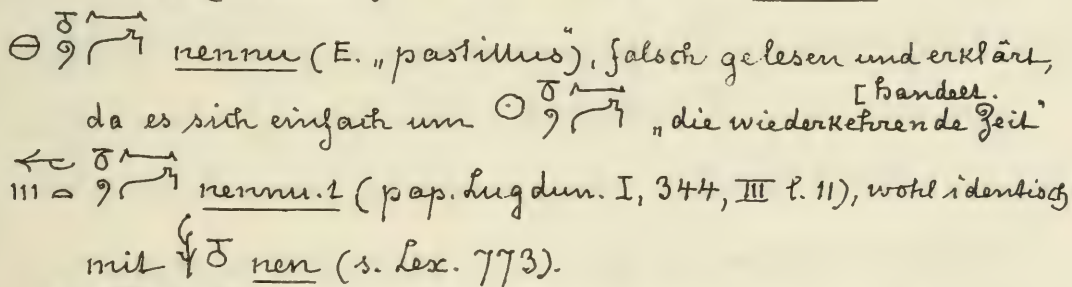 nennu (E. „pastillus"), falsch gelesen und erklärt,
[handelt.
da es sich einfach um „die wiederkehrende Zeit"
nennu.t (pap. Lugdun. I, 344, III l. 11), wohl identisch
mit nen (s. Lex. 773).